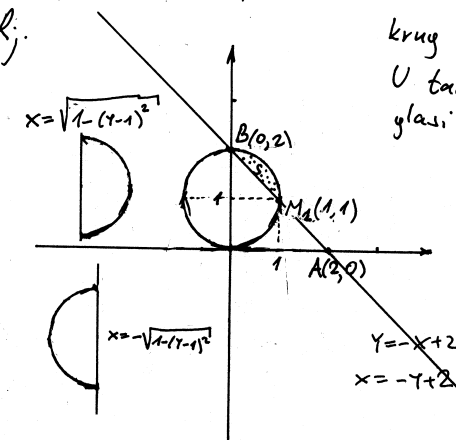 Rj.
krug
U ta
glasi
x=√1-(y-1)²
B(0,2)
S
1
M₁(1,1)
1
A(2,0)
x=-√1-(y-1)²
y=-x+2
x=-y+2